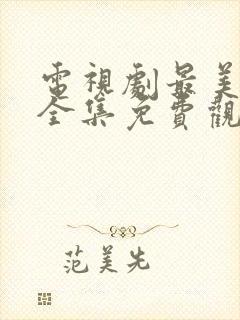 電視劇最美
全集免費觀
范美先